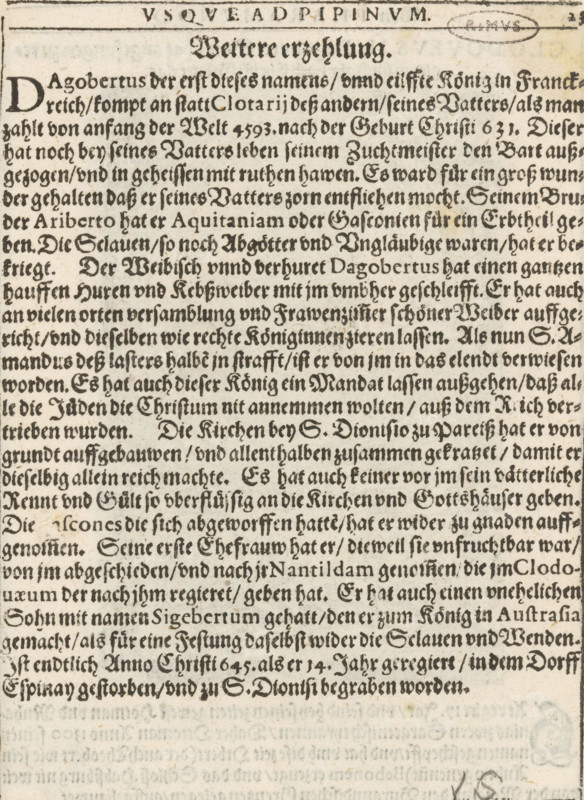 VSQVE AD PIPINVM.
RIMVS.
Weitere erzehlung.
DAgobertus der erst dieses namens/ vnnd eilffte König in Franck-
reich/kompt an statt Clotarij deß andern/seines Vatters/als man
zahlt von anfang der Welt 4593. nach der Geburt Christi 631. Dieser
hat noch bey seines Vatters leben seinem Zuchtmeister den Bart auß-
gezogen/vnd in geheissen mit ruthen hawen. Es ward für ein groß wun-
der gehalten daß er seines Vatters zorn entfliehen mocht. Seinem Bru-
der Ariberto hat er Aquitaniam oder Gasconien für ein Erbtheil ge-
ben. Die Sclauen/so noch Abgötter vnd Vngläubige waren/hat er be-
kriegt. Der Weibisch vnnd verhuret Dagobertus hat einen gantzen
hauffen Huren vnd Kebßweiber mit jm vmbher geschleifft. Er hat auch
an vielen orten versamblung vnd Frawenzim̃er schöner Weiber auffge-
richt/vnd dieselben wie rechte Königinnen zieren lassen. Als nun S. A-
mandus deß lasters halbẽ jn strafft/ist er von jm in das elendt verwiesen
worden. Es hat auch dieser König ein Mandat lassen außgehen/daß al-
le die Jüden die Christum nit annemmen wolten/ auß dem Reich ver-
trieben wurden. Die Kirchen bey S. Dionisio zu Pareiß hat er von
grundt auffgebauwen/vnd allenthalben zusammen gekratzet/ damit er
dieselbig allein reich machte. Es hat auch keiner vor jm sein vätterliche
Rennt vnd Gült so vberflüssig an die Kirchen vnd Gottshäuser geben.
Die ascones die sich abgeworffen hattẽ/hat er wider zu gnaden auff-
genom̃en. Seine erste Ehefrauw hat er/ dieweil sie vnfruchtbar war/
von jm abgeschieden/vnd nach jr Nantildam genom̃en/die jm Clodo-
uæum der nach jhm regieret/ geben hat. Er hat auch einen vnehelichen
Sohn mit namen Sigebertum gehatt/den er zum König in Austrasia
gemacht/als für eine Festung daselbst wider die Sclauen vnd Wenden.
Ist endtlich Anno Christi 645. als er 14. Jahr geregiert/in dem Dorff
Espinay gestorben/vnd zu S. Dionisi begraben worden.
V. S.